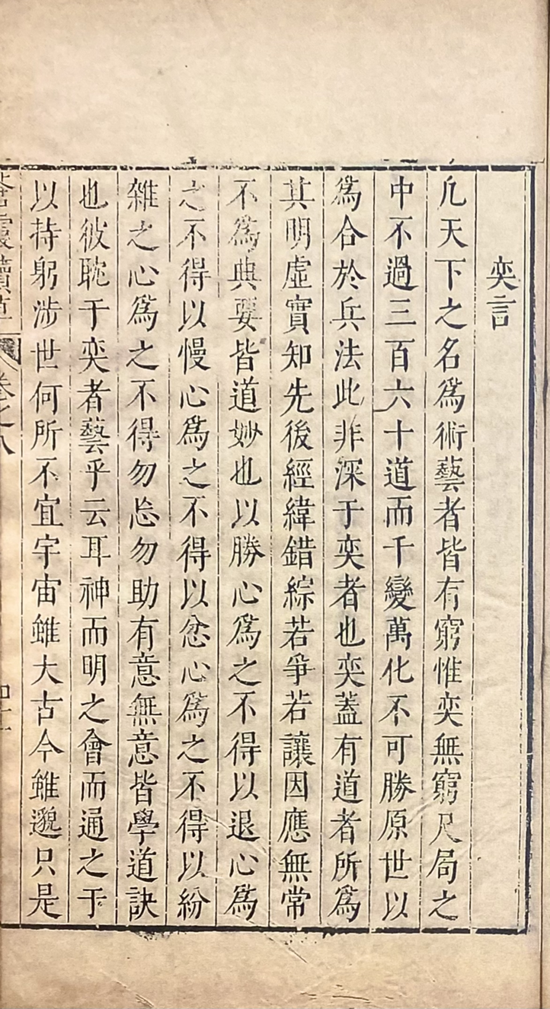 奕言
凢天下之名爲術藝者皆有窮惟奕無窮尺局之
中不過三百六十道而千變萬化不可勝原世以
爲合於兵法此非深于奕者也奕蓋有道者所爲
其明虛實知先後經緯錯綜若爭若讓因應無常
不爲典要皆道妙也以勝心爲之不得以退心爲
之不得以慢心爲之不得以忿心爲之不得以紛
雜之心爲之不得勿忘勿助有意無意皆學道訣
也彼耽于奕者藝乎云耳神而明之會而通之于
以持躬涉世何所不宜宇宙雖大古今雖邈只是
卷之八